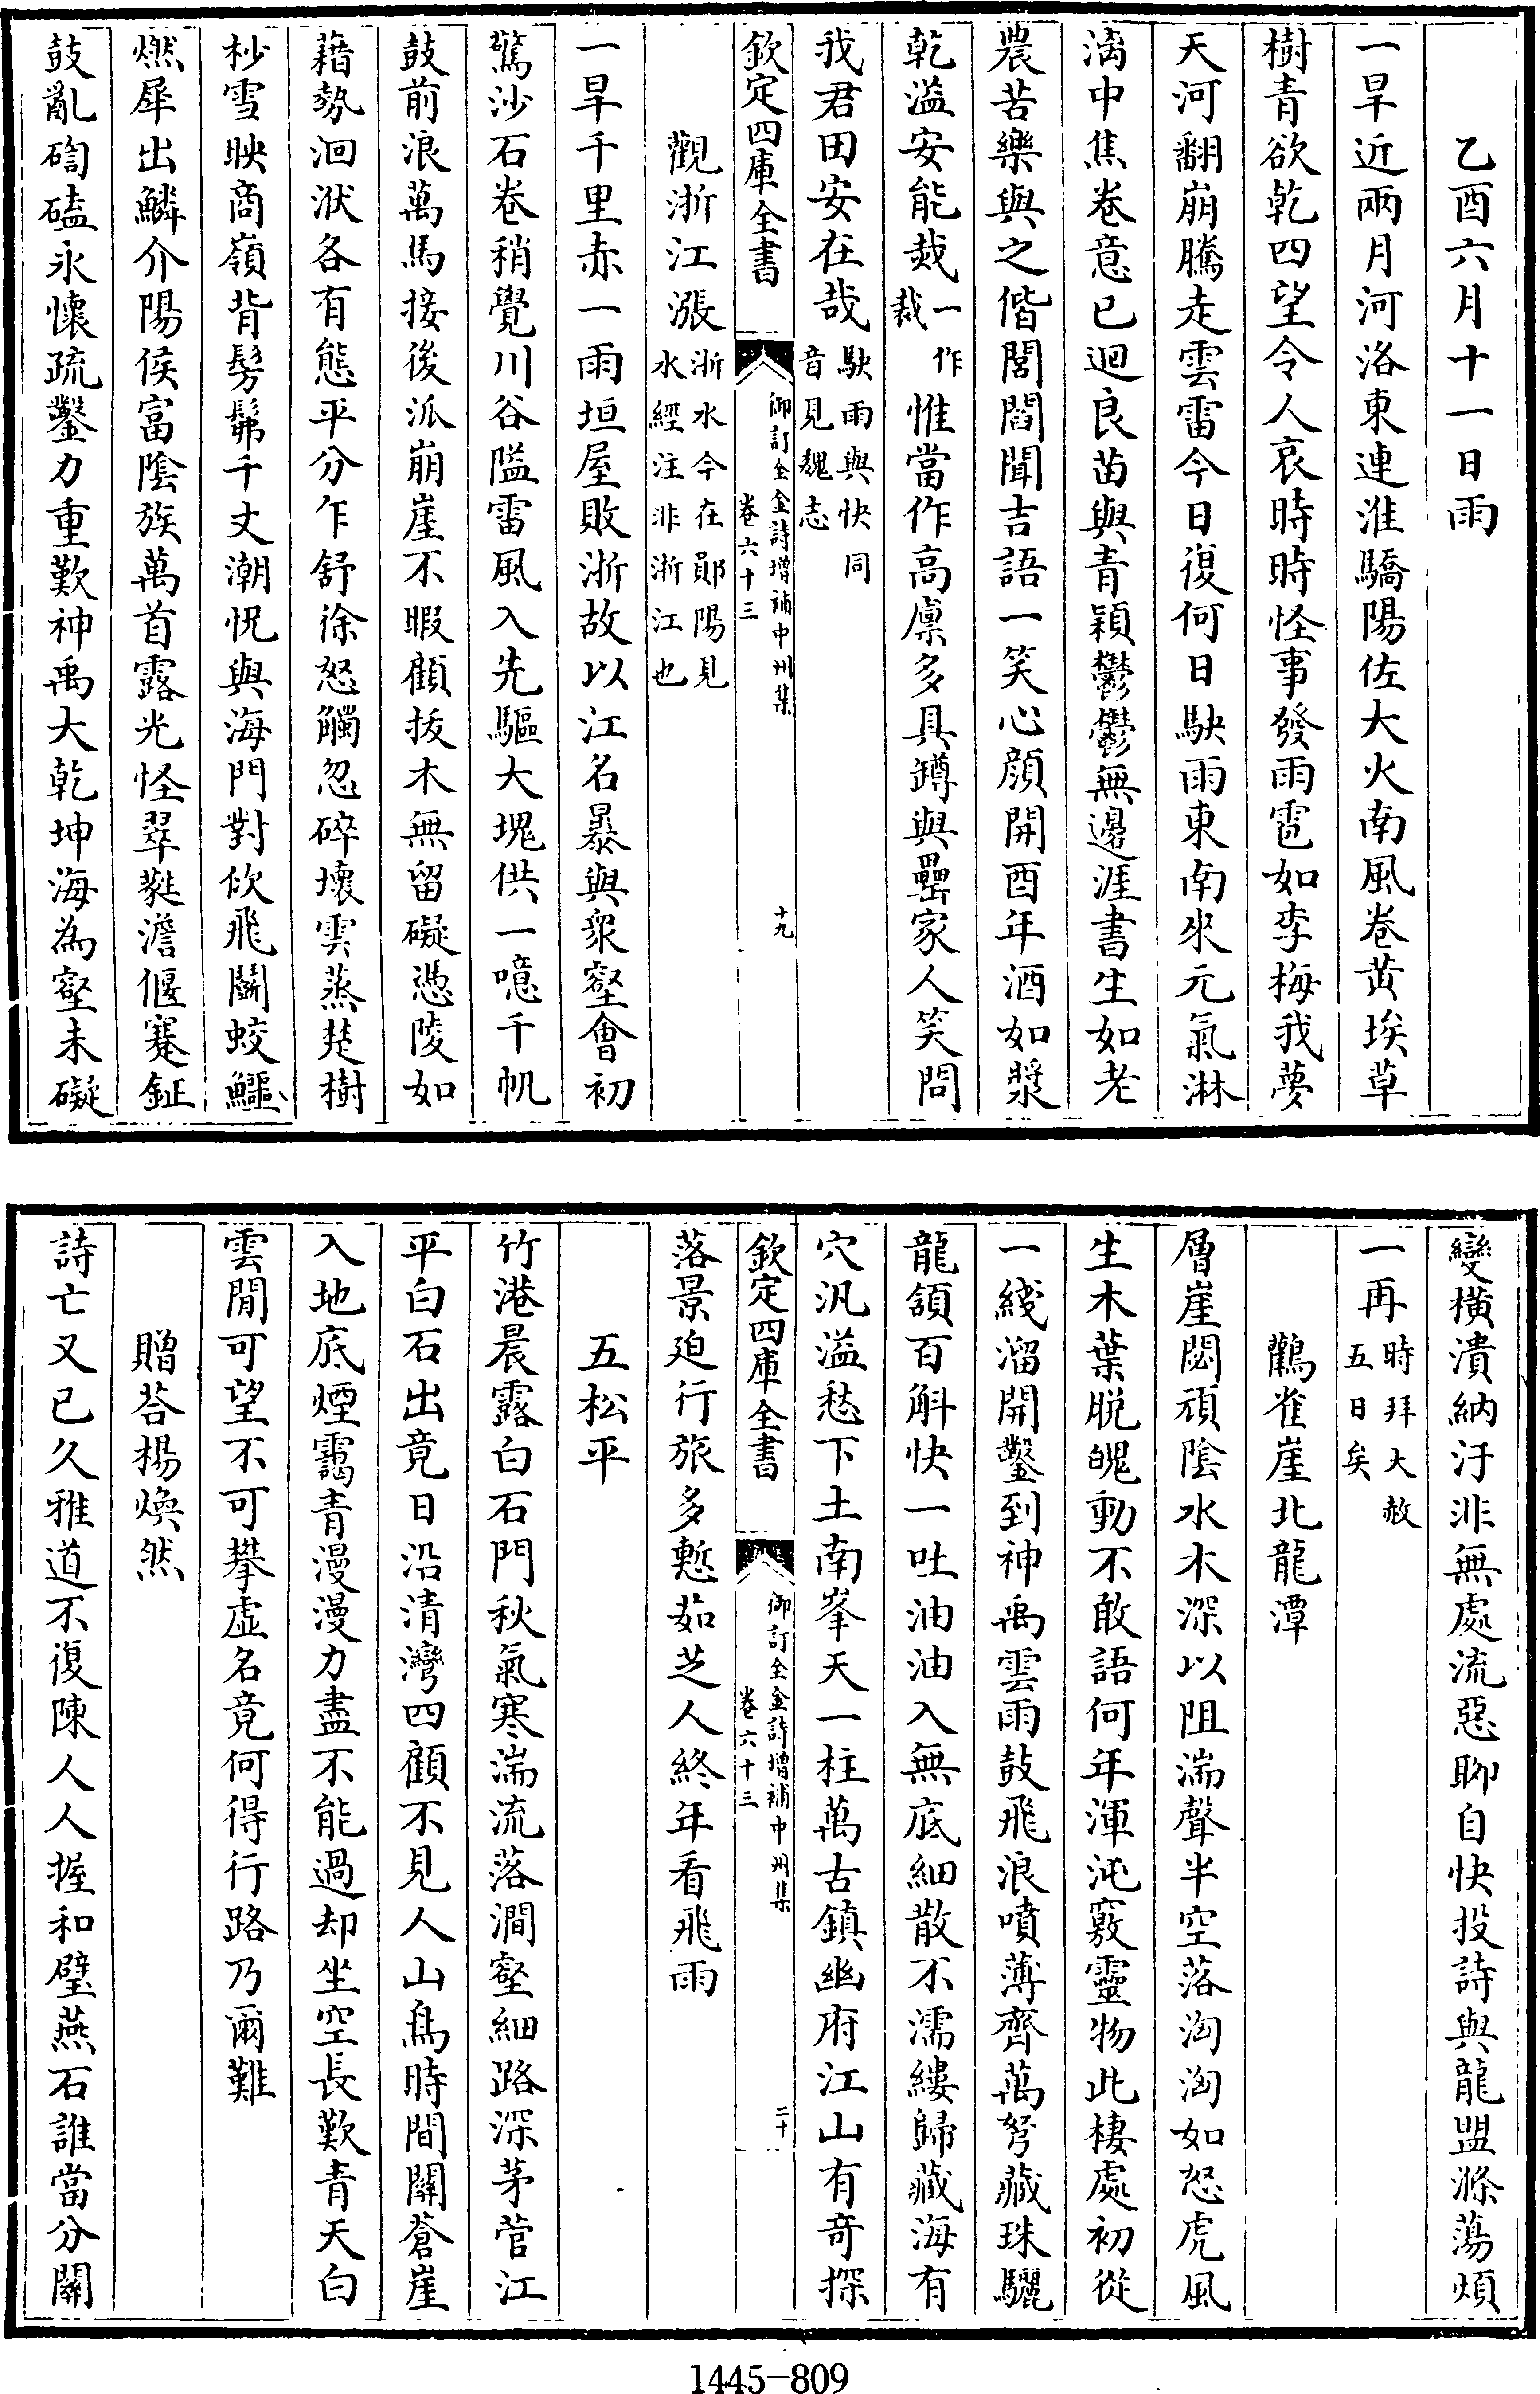 乙酉六月十一日雨
一旱近兩月河洛東連淮驕陽佐大火南風卷黃埃草
樹青欲乾四望令人哀時時怪事發雨雹如李梅我夢
天河翻崩騰走雲雷今日復何日駃雨東南來元氣淋
漓中焦卷意已迴良苗與青穎鬱鬱無邊涯書生如老
農苦樂與之偕閭閻聞吉語一笑心顔開酉年酒如漿
乾溢安能烖一作裁惟當作高廪多具罇與罍家人笑問
我君田安在哉駃雨與快同音見魏志
欽定四庫全書 御訂全金詩增補中州集 卷六十三 十九
觀浙江漲浙水今在鄖陽見水經注非浙江也
一旱千里赤一雨垣屋敗浙故以江名暴與衆壑會初
驚沙石卷稍覺川谷隘雷風入先驅大塊供一噫千帆
鼓前浪萬馬接後派崩崖不暇顧拔木無留礙憑陵如
藉勢洄洑各有態平分乍舒徐怒觸忽碎壞雲蒸楚樹
杪雪映商嶺背髣髴千丈潮怳與海門對佽飛鬭蛟鱷
燃犀出鱗介陽侯富陰族萬首露光怪翠蕤澹偃蹇鉦
鼓亂磤磕永懷疏鑿力重歎神禹大乾坤海為壑未礙
變橫潰納汙非無處流惡聊自快投詩與龍盟滌蕩煩
一再時拜大赦五日矣
鸛雀崖北龍潭
層崖閟頑陰水木深以阻湍聲半空落洶洶如怒虎風
生木葉脱魄動不敢語何年渾沌竅靈物此棲處初從
一綫溜開鑿到神禹雲雨鼓飛浪噴薄齊萬弩藏珠驪
龍頷百斛快一吐油油入無底細散不濡縷歸藏海有
穴汎溢愁下土南峯天一柱萬古鎮幽府江山有竒探
欽定四庫全書 御訂全金詩增補中州集 卷六十三 二十
落景廹行旅多慙茹芝人終年看飛雨
五松平
竹港晨露白石門秋氣寒湍流落澗壑細路深茅菅江
平白石出竟日沿清灣四顧不見人山鳥時間關蒼崖
入地底煙靄青漫漫力盡不能過却坐空長歎青天白
雲閒可望不可攀虚名竟何得行路乃爾難
贈荅楊煥然
詩亡又已久雅道不復陳人人握和璧燕石誰當分關
1445-809